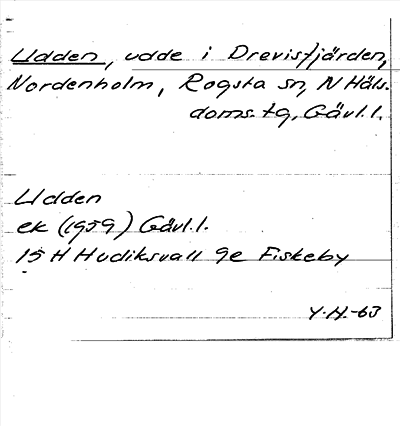 Udden, udde i Drevisfjärden,
Nordenholm, Rogsta sn, N Häls.
doms. tg, Gävl. l.
Udden
ek (1959) Gävl. l.
15 H Hudiksvall 9e Fiskeby
Y.H.-63